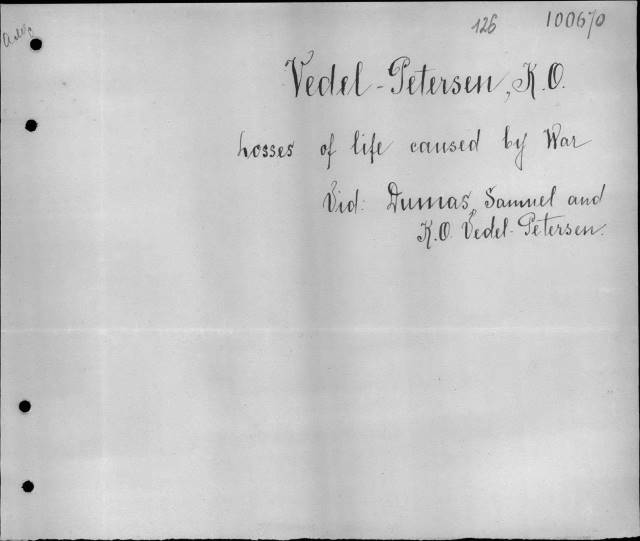 126 100670
Vedel-Petersen, K.O.
Losses of life caused by War
Vid: Dumas, Samuel and
K.O. Vedel-Petersen.